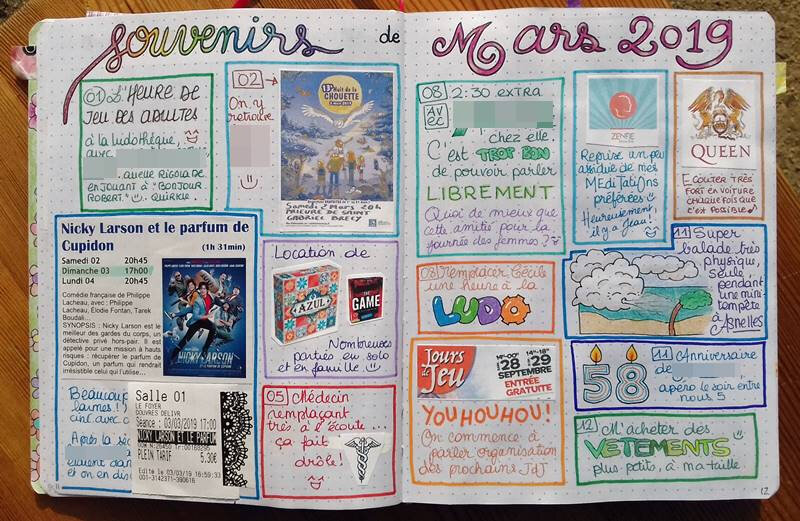 Souvenirs de Mars 2019
01 L'HEURE DE
JEU DES ADULTES
à la ludothèque,
avec
, quelle RIGOLADE
EN JOUANT à "BONJOUR
ROBERT". QUIRKLE.
02
On s'y
retrouve
11e Nuit de la
CHOUETTE
2 mars 2019
Samedi 2 Mars 20h
PRIEURE DE SAINT
GABRIEL BRECY
Nicky Larson et le parfum de
Cupidon
(1h 31min)
Samedi 02 20h45
Dimanche 03 17h00
Lundi 04 20h45
Comédie française de Philippe
Lacheau, avec: Philippe
Lacheau, Élodie Fontan, Tarek
Boudali...
SYNOPSIS : Nicky Larson est le
meilleur des gardes du corps, un
détective privé hors-pair. Il est
appelé pour une mission à hauts
risques : récupérer le parfum de
Cupidon, un parfum qui rendrait
irrésistible celui qui l'utilise...
NICKY LARSON
Beaucoup
larmes !
ciné avec
Après la sé
étaient dan
et on en dis
Salle 01
LE FOYER
DOUVRES DELIVR
Séance : 03/03/2019 17:00
NICKY LARSON ET LE PARFUM
PLEIN TARIF 5.30€
Edité le 03/03/19 16:59:33
001-3142371-380616
Location de
AZUL
THE GAME
Nombreuses
parties en solo
et en famille
05 Médecin
remplaçant
très à l'écoute...
ça fait
drôle!
11
08 2:30 EXTRA
AVEC
chez elle.
C'est TROP BON
de pouvoir parler
LIBREMENT
Quoi de mieux que
cette amitié pour la
journée des femmes ?
08 Remplacer Cécile
une heure à la
LUDO
Jours de Jeu
14h-00h 28
14h-18h 29
SEPTEMBRE
ENTRÉE
GRATUITE
YOUHOUHOU!
On commence à
parler organisation
des prochains JdJ
ZENFIE
Reprise un peu
assidue de mes
MEdiTAtiOns
préférées
Heureusement,
il y a Jeau !
QUEEN
ECOUTER TRÈS
FORT EN VOITURE
CHAQUE FOIS QUE
C'EST POSSIBLE
11 Super
balade très
physique,
seule,
pendant
une mini
tempête
à Asnelles
58
11 Anniversaire
de
apéro le soir entre
nous 5
12 M'acheter des
VETEMENTS
plus petits, à ma taille
12